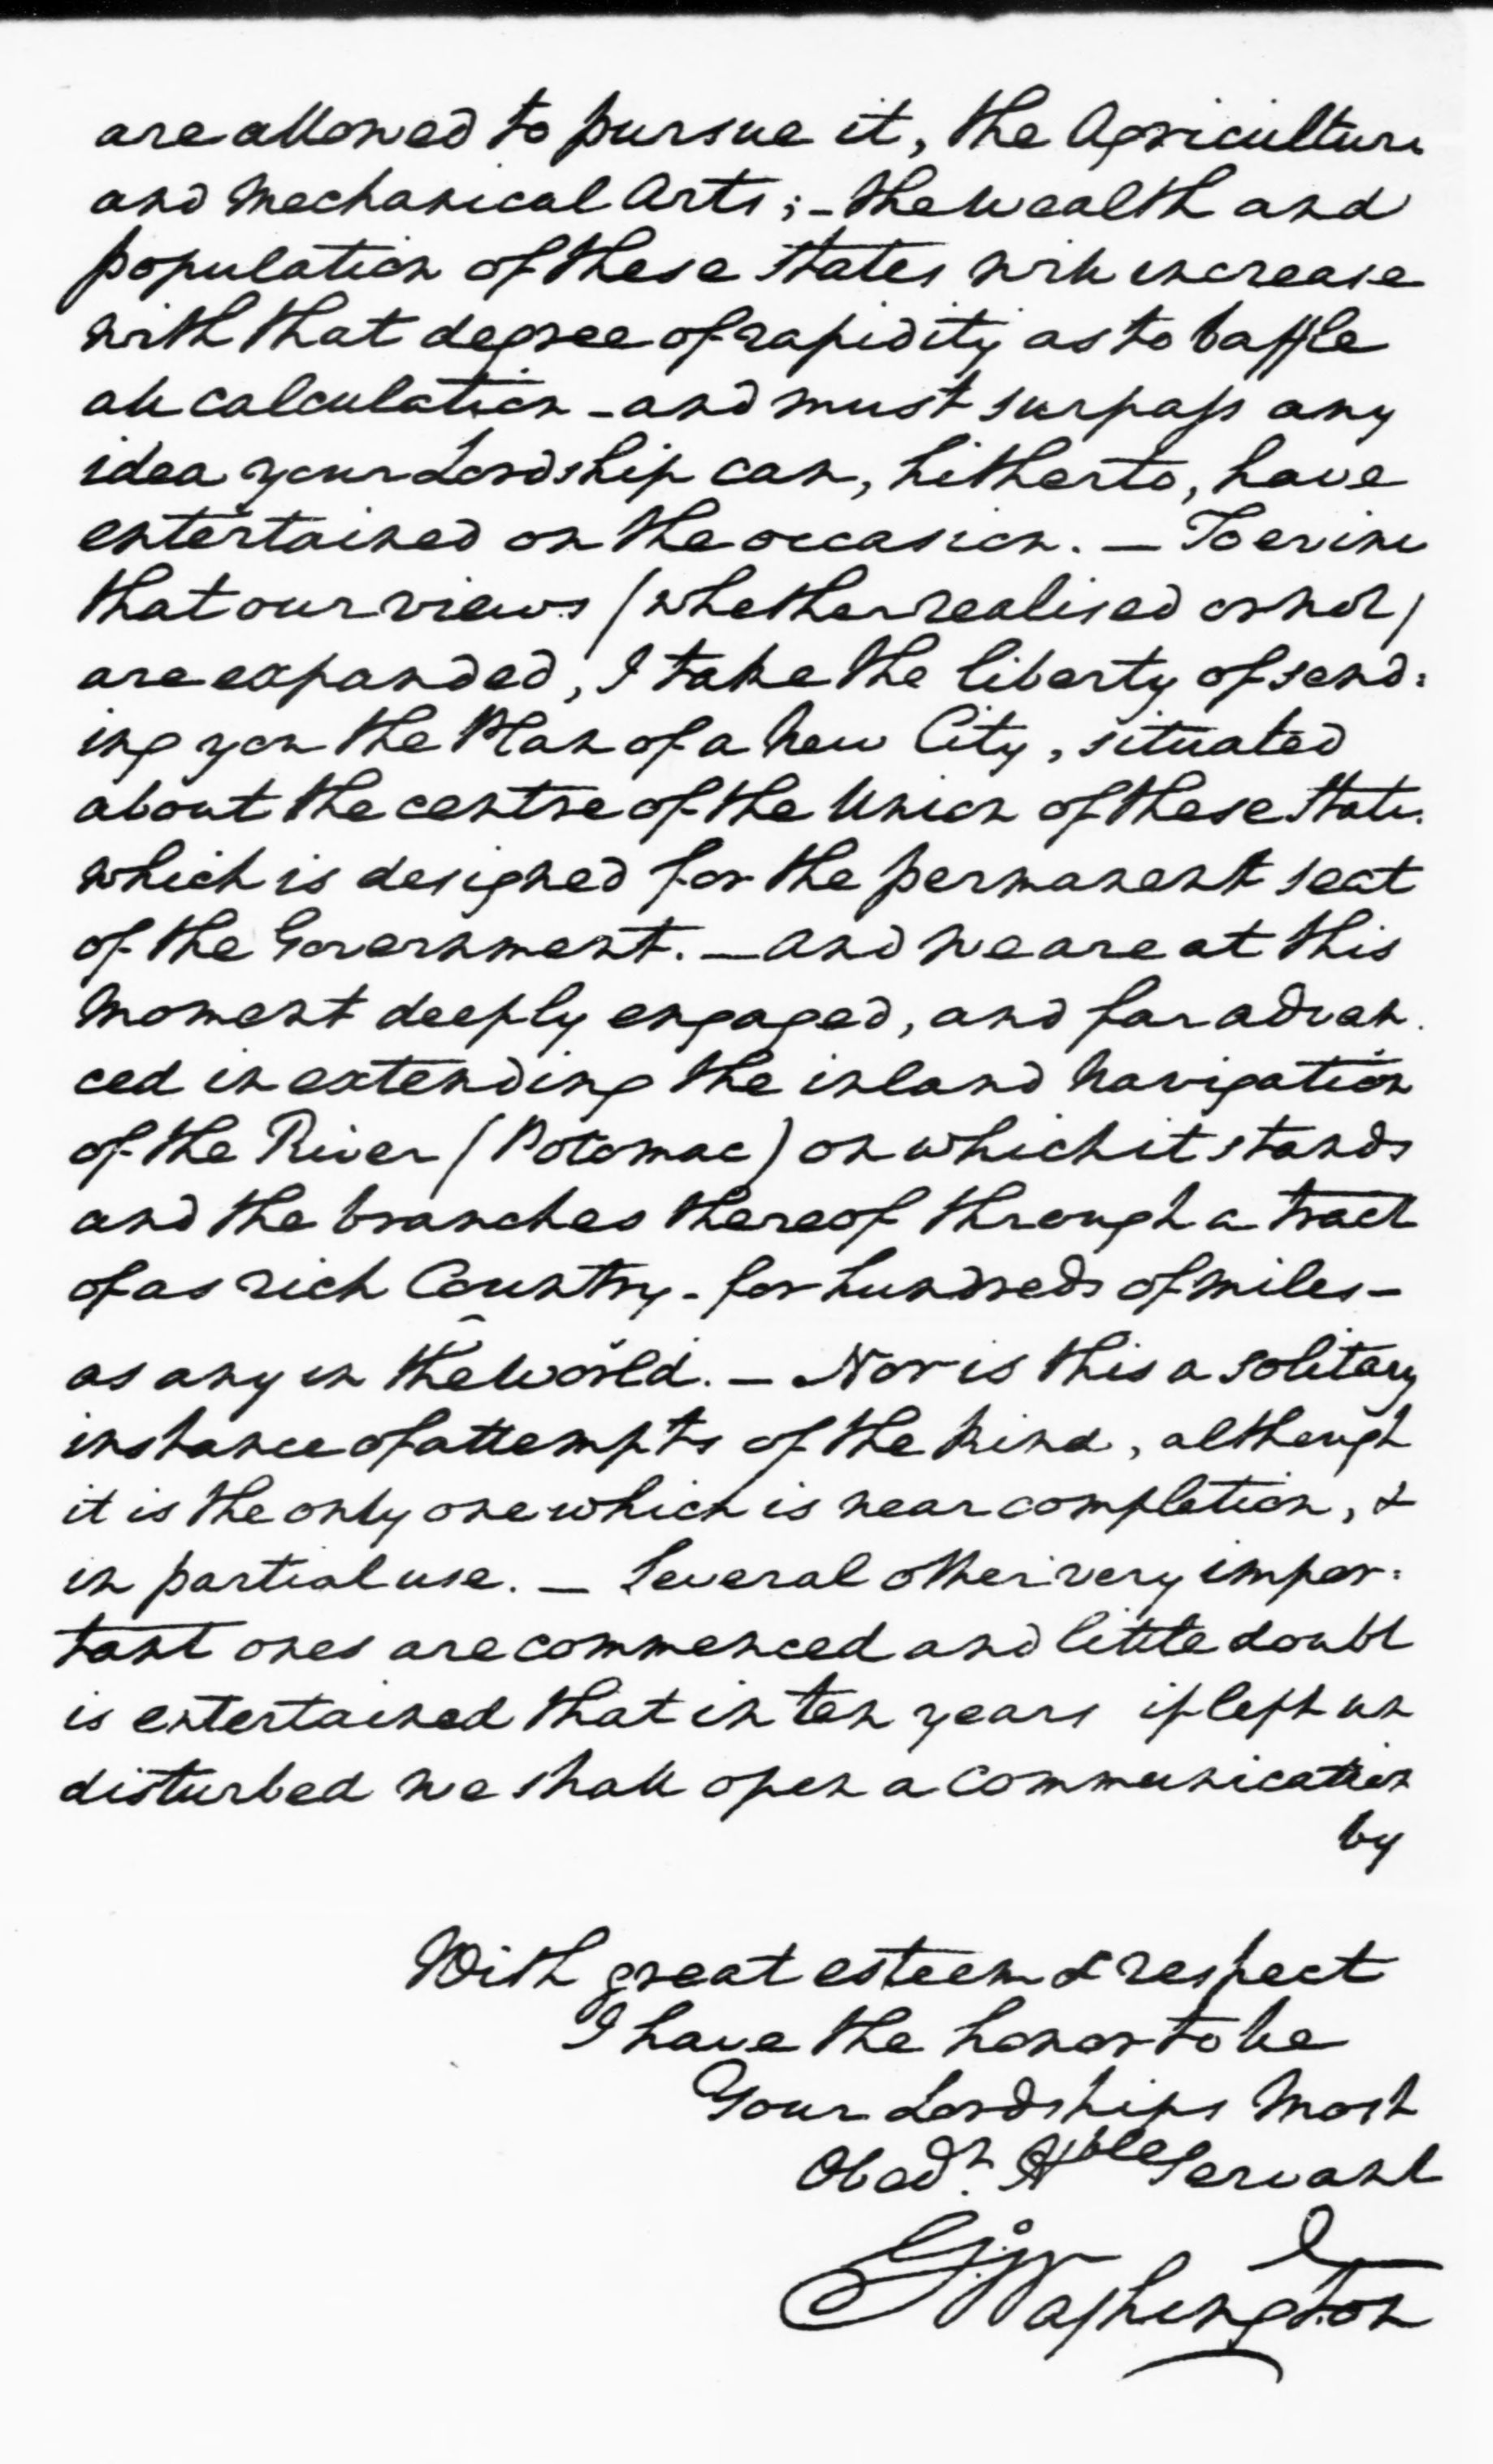 are allowed to pursue it, the Agriculture
and Mechanical Arts; - the wealth and
population of these States will increase
with that degree of rapidity as to baffle
all calculation - and must surpass any
idea your Lordship can, hitherto, have
entertained on the occasion. — To evince
that our views (whether realised or not)
are expanded, I take the liberty of send:
ing you the Plan of a New City, situated
about the centre of the Union of these States.
which is designed for the permanent seat
of the Government. — And we are at this
moment deeply engaged, and far advan.
ced in extending the inland Navigation
of the River (Potomac) on which it stands
and the branches thereof through a tract
of as rich Country - for hundreds of miles -
as any in the World. — Nor is this a solitary
instance of attempts of the kind, although
it is the only one which is near completion, &
in partial use. — Several other very impor:
tant ones are commenced and little doubt
is entertained that in ten years if left un
disturbed we shall open a communication
by
With great esteem & respect
I have the honor to be
Your Lordships Most
Obedt. Hble Servant
Go: Washington